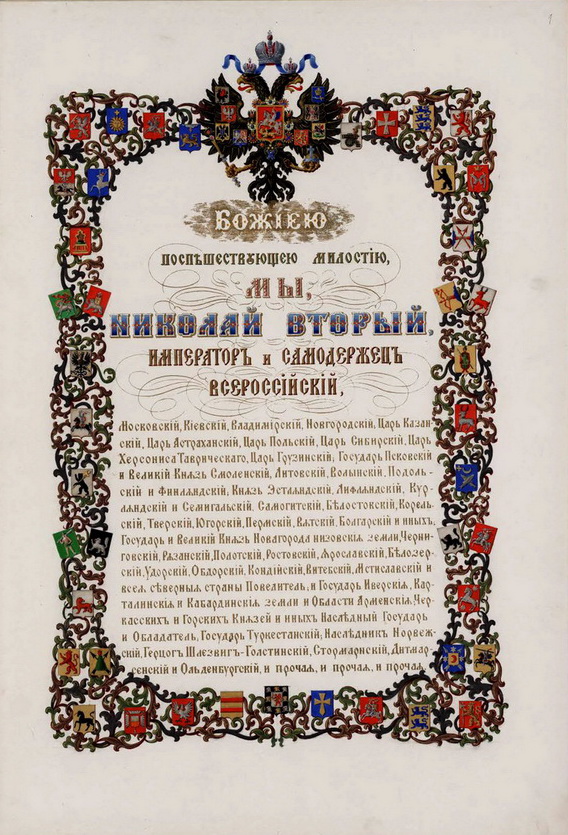 БОЖІЕЮ
ПОСПѢШЕСТВУЮЩЕЮ МИЛОСТІЮ,
МЫ,
НИКОЛАЙ ВТОРЫЙ,
ИМПЕРАТОРЪ и САМОДЕРЖЕЦЪ
ВСЕРОССІЙСКІЙ,
Московскій, Кіевскій, Владимірскій, Новгородскій, Царь Казан-
скій, Царь Астраханскій, Царь Польскій, Царь Сибирскій, Царь
Херсониса Таврическаго, Царь Грузинскій, Государь Псковскій
и Великій Князь Смоленскій, Литовскій, Волынскій, Подоль-
скій и Финляндскій, Князь Эстляндскій, Лифляндскій, Кур-
ляндскій и Семигальскій, Самогитскій, Бѣлостокскій, Корель-
скій, Тверскій, Югорскій, Пермскій, Вятскій, Болгарскій и иныхъ,
Государь и Великій Князь Новагорода низовскія земли, Черни-
говскій, Рязанскій, Полотскій, Ростовскій, Ярославскій, Бѣлозер-
скій, Удорскій, Обдорскій, Кондійскій, Витебскій, Мстиславскій и
всея сѣверныя страны Повелитель, и Государь Иверскія, Кар-
талинскія и Кабардинскія земли и Области Арменскія, Чер-
касскихъ и Горскихъ Князей и иныхъ Наслѣдный Государь
и Обладатель, Государь Туркестанскій, Наслѣдникъ Норвеж-
скій, Герцогъ Шлезвигъ-Голстинскій, Стормарнскій, Дитмар-
сенскій и Ольденбургскій, и прочая, и прочая, и прочая